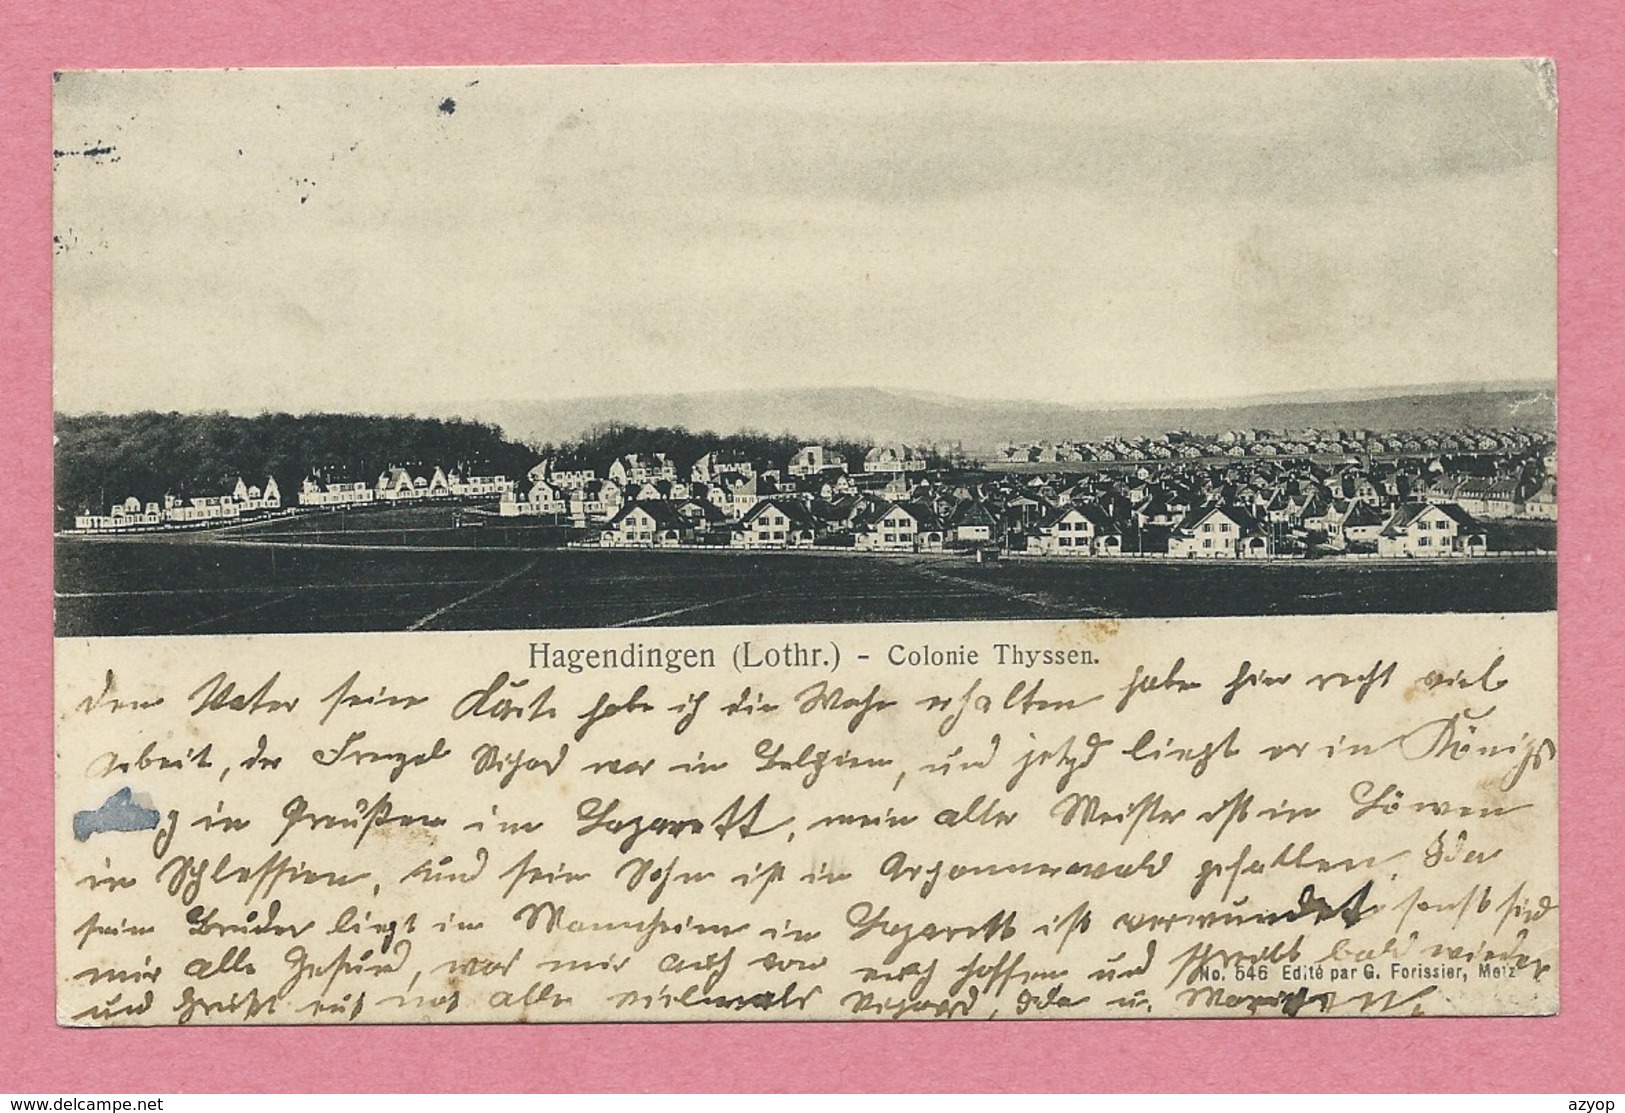 Hagendingen (Lothr.) - Colonie Thyssen.
dem Vater seine Karte habe ich die Woche erhalten habe hier recht viel
Arbeit, der Frenzel Richard war in Belgien, und jetzd liegt er in Königs
g in Preußen im Lazarett, mein alter Meister ist in Löwen
in Schlessien, und sein Sohn ist in Argonnerwald gefallen, Ida
sein Bruder liegt in Mannheim in Lazarett ist verwundet, sonst sind
mir alle Gesund, was mir auch von euch hoffen und schreibt bald wieder
No. 546 Edité par G. Forissier, Metz
und Grüßt alle vielmals Richard, Ida u.
delcampe.net
azyop